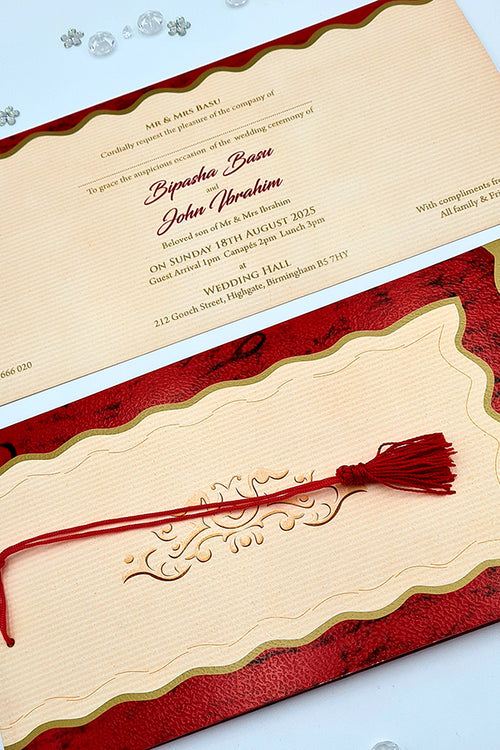 MR & MRS BASU
Cordially request the pleasure of the company of
To grace the auspicious occasion of the wedding ceremony of
Bipasha Basu
and
John Ibrahim
Beloved son of Mr & Mrs Ibrahim
ON SUNDAY 18TH AUGUST 2025
Guest Arrival 1pm Canapés 2pm Lunch 3pm
at
WEDDING HALL
212 Gooch Street, Highgate, Birmingham B5 7HY
With compliments
All family &
666 020